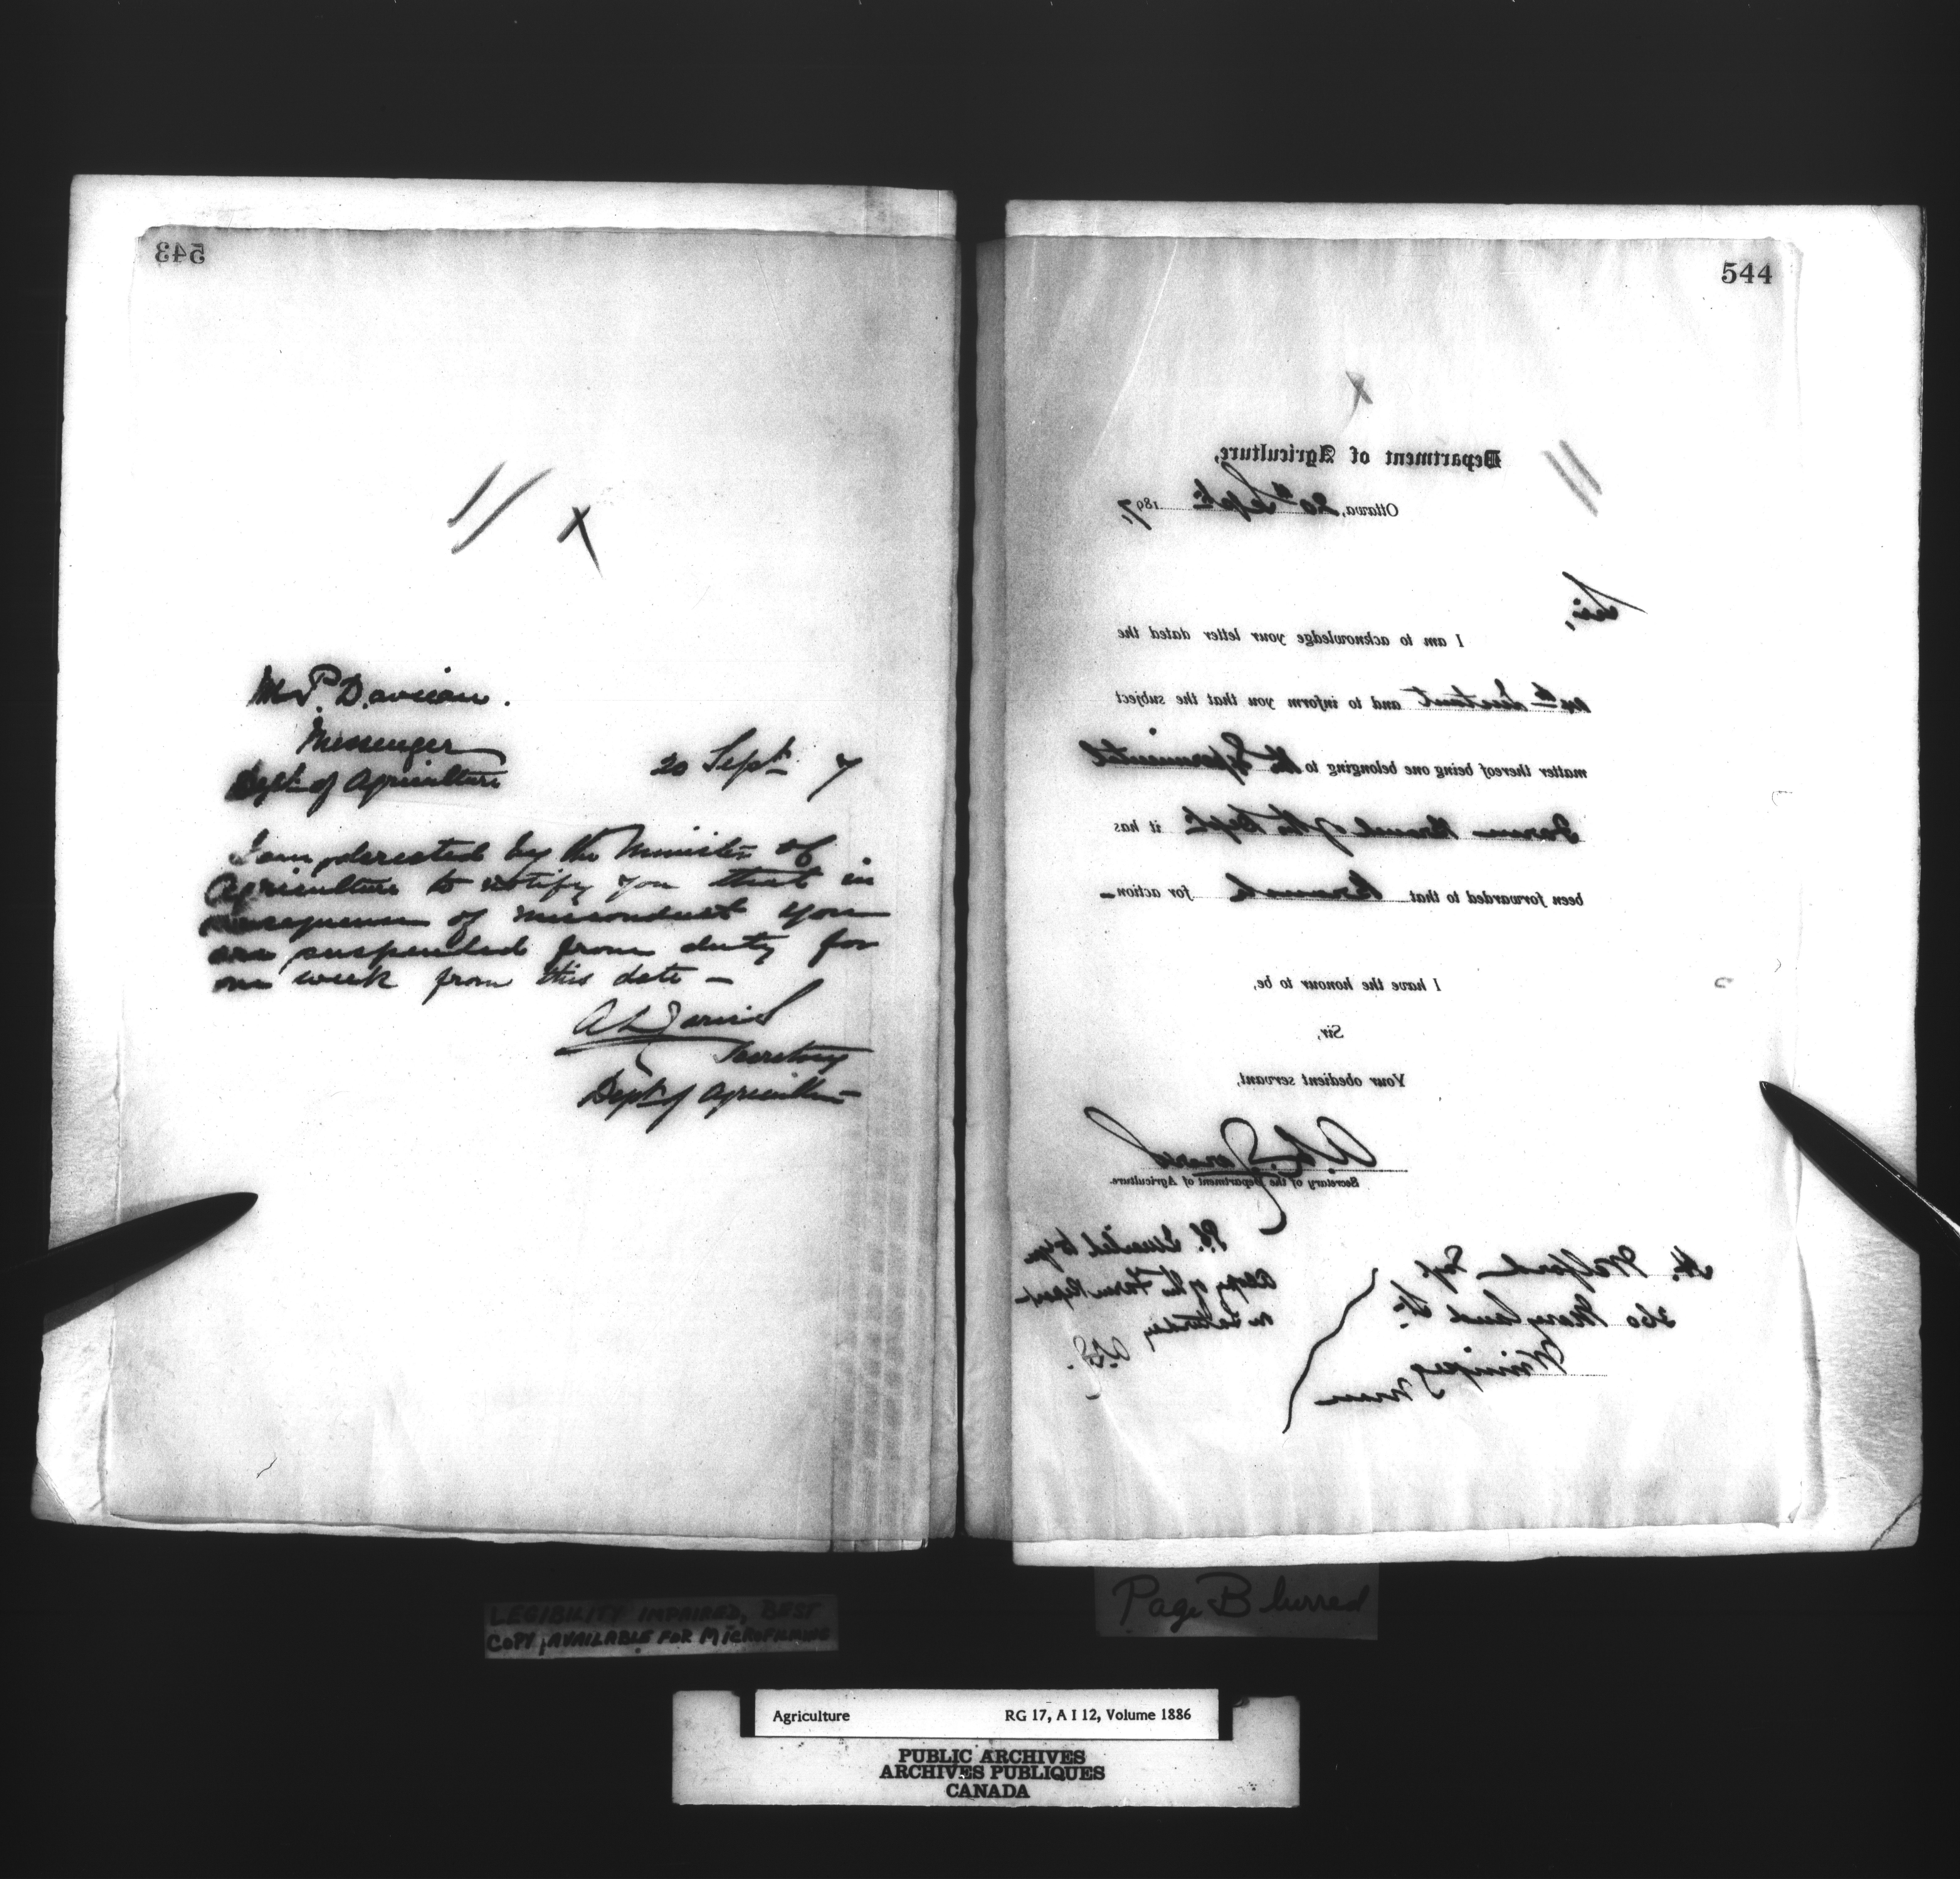 543
Mr P. Davieau.
Messenger
Dept of Agriculture
20 Sept 7
I am directed by the Minister of
Agriculture to notify you that in
consequence of misconduct you
are suspended from duty for
one week from this date –
A L Jarvis
Secretary
Dept of Agriculture
544
Department of Agriculture,
Ottawa, 20th Sept. 1897,
Sir,
I am to acknowledge your letter dated the
Instant and to inform you that the subject
matter thereof being one belonging to the Experimental
Farm Branch of the Dept. it has
been forwarded to that Branch for action –
I have the honour to be,
Sir,
Your obedient servant,
A. L. Jarvis
Secretary of the Department of Agriculture.
H. Welford Esq.
260 Maryland St.
Winnipeg
Man
P.S. I mailed to you
a Copy of the Farm Report
on Saturday
LEGIBILITY IMPAIRED, BEST
COPY AVAILABLE FOR MICROFILMING
Page Blurred
Agriculture RG 17, A I 12, Volume 1886
PUBLIC ARCHIVES
ARCHIVES PUBLIQUES
CANADA